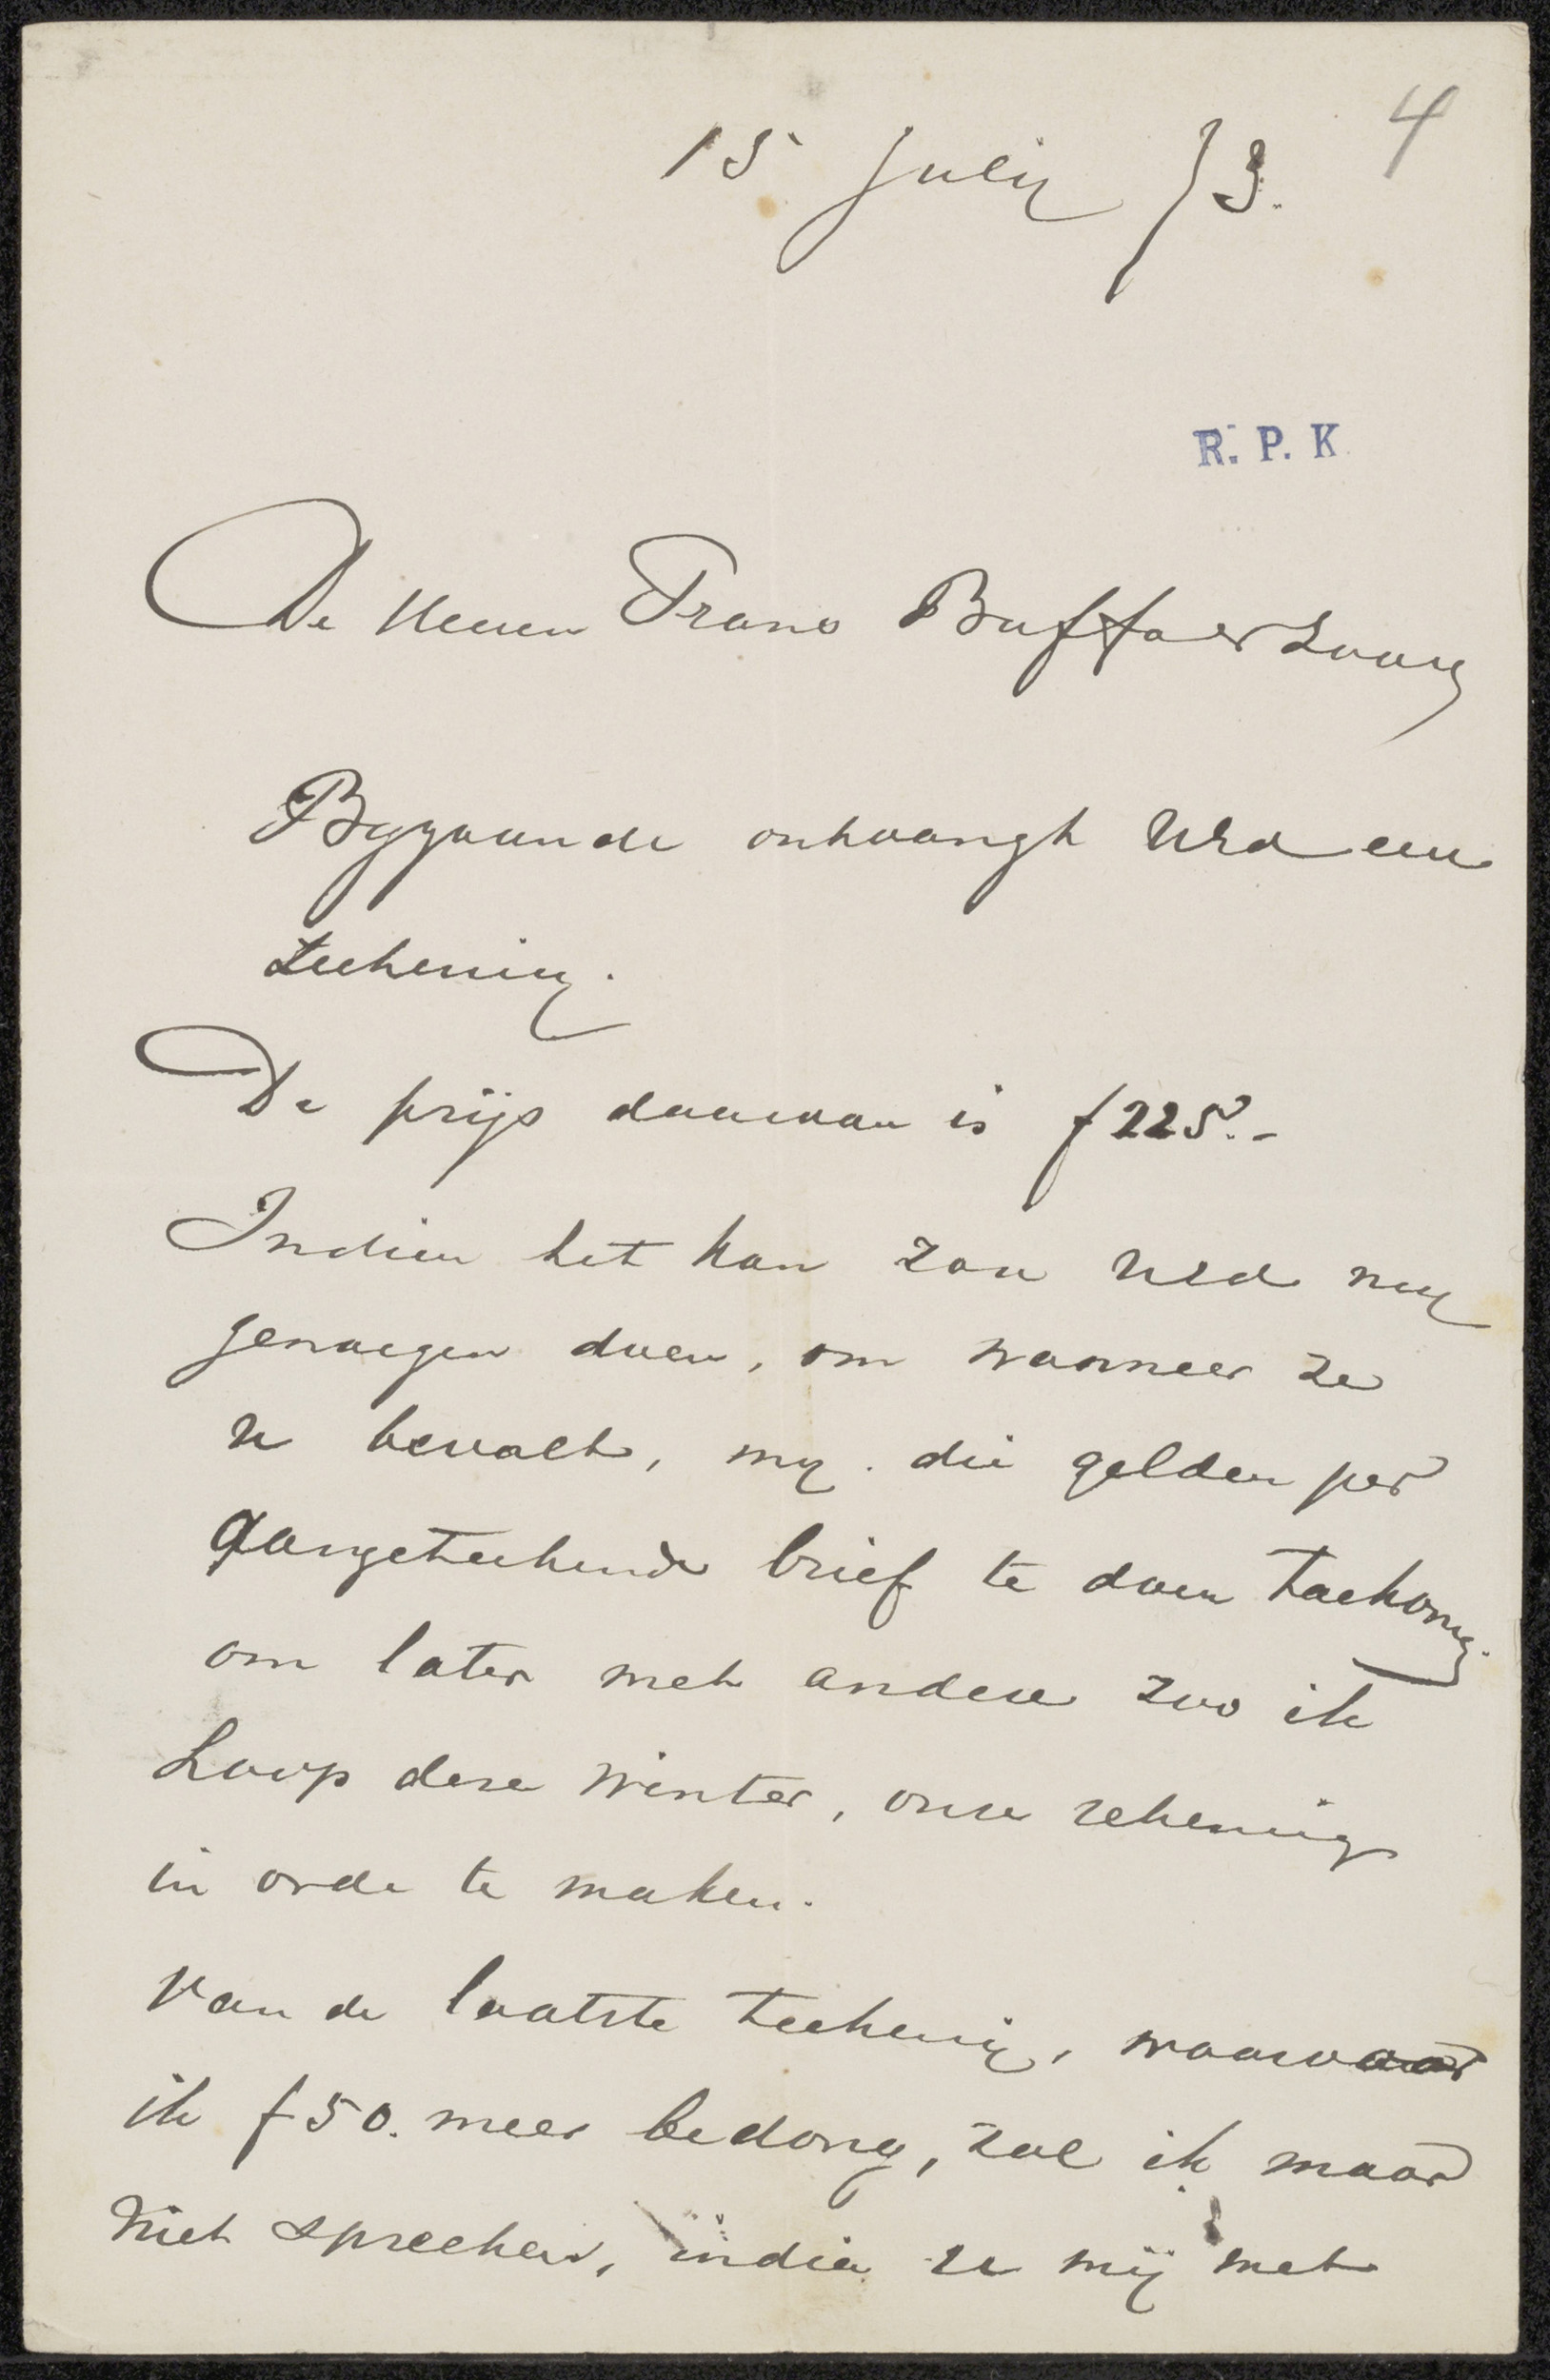 4
15 July 73.
R. P. K
De Heeren Frans Buffa en Zoon
Bygaande ontvangt UEd een
teekening.
De prijs daarvan is f 225.-
Indien het kan zou UEd my
genoegen doen, om wanneer ze
u bevalt, my die gelden per
aangeteekende brief te doen toekomen
om later met andere zoo ik
hoop deze winter, onze rekening
in orde te maken.
Van de laatste teekening, waarvoor
ik f 50. meer bedong, zal ik maar
niet spreeken, indien ze mij met